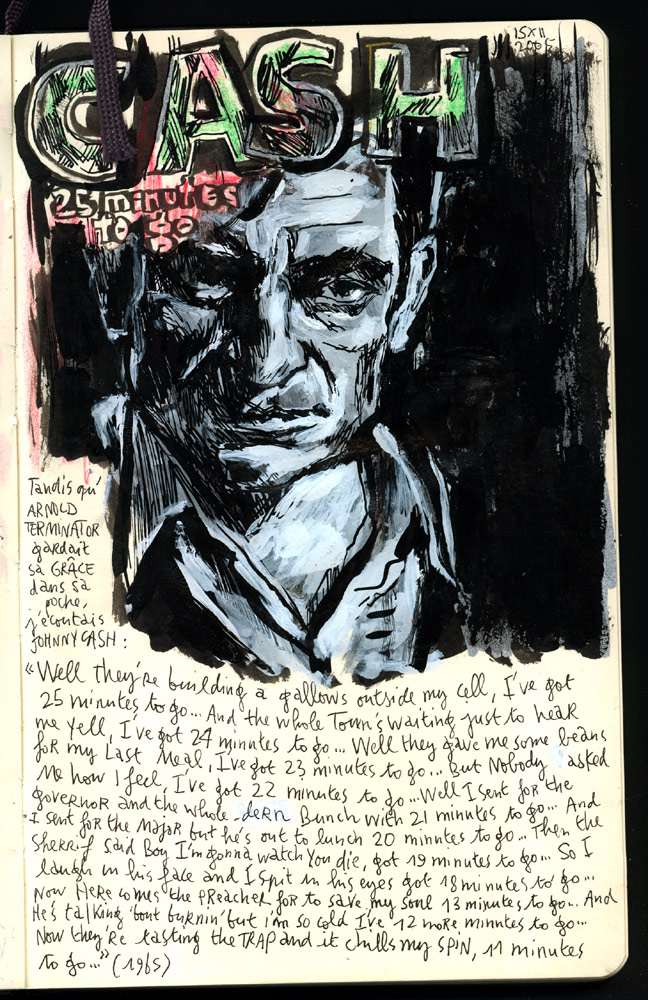 CASH
15 XII
2005
25 minutes
TO GO
Tandis qu'
ARNOLD
TERMINATOR
gardait
sa GRÂCE
dans sa
poche,
j'écoutais
JOHNNY CASH :
"Well they're building a gallows outside my cell, I've got
25 minutes to go... And the whole Town's waiting just to heaR
me yell, I've got 24 minutes to go... Well they gave me some beans
for my Last Meal, I've got 23 minutes to go... But Nobody asked
Me how I feel, I've got 22 minutes to go... Well I sent for the
governor and the whole dern Bunch with 21 minutes to go... And
I sent for the Major but he's out to lunch 20 minutes to go... Then the
Shereif said Boy I'm gonna watch You die, got 19 minutes to go... So I
laugh in his face and I spit in his eyes got 18 minutes to go...
Now Here comes the PReacher for to save my soul 13 minutes to go... And
He's talking 'bout burnin' but i'm so cold I've 12 more minutes to go...
Now they're tasting the TRAP and it chills my SPIN, 11 minutes
to go..." (1965)